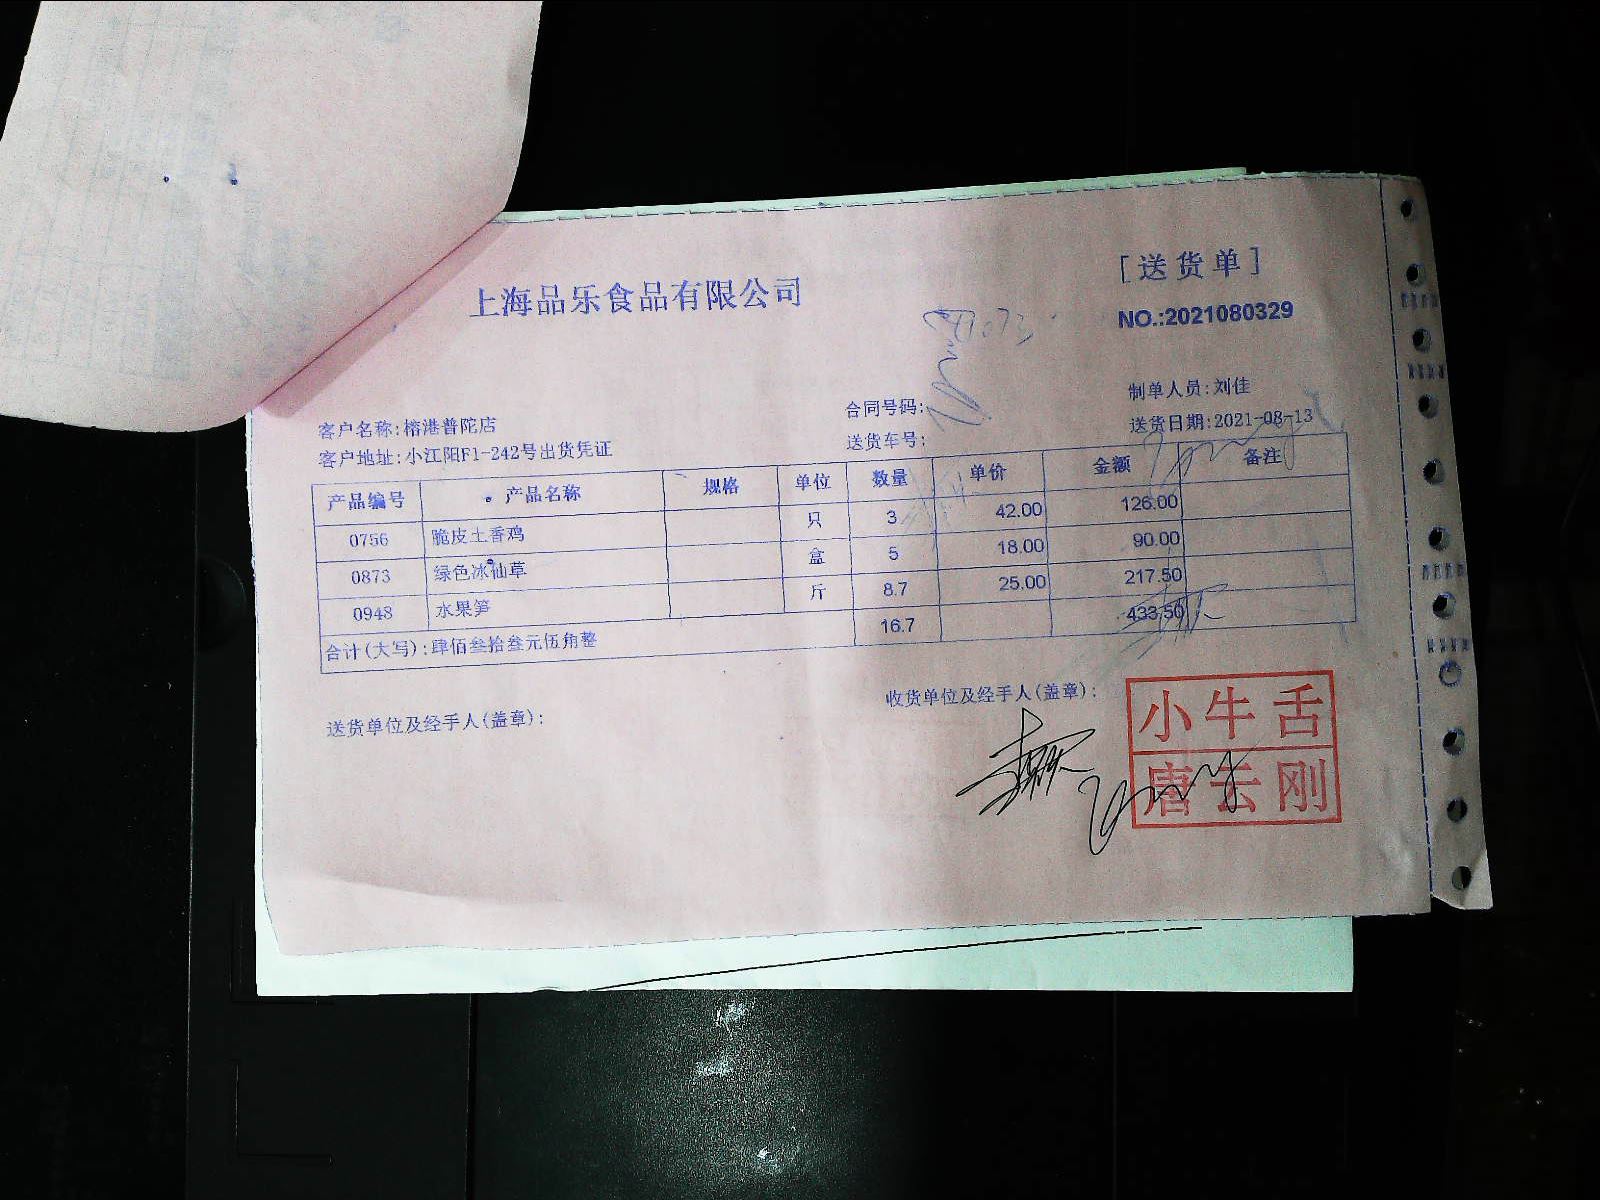 上海品乐食品有限公司
[送货单]
NO.:2021080329
制单人员:刘佳
客户名称:榕港普陀店
合同号码:
送货日期:2021-08-13
客户地址:小江阳F1-242号出货凭证
送货车号:
产品编号 产品名称 规格 单位 数量 单价 金额 备注
0756 脆皮土香鸡 只 3 42.00 126.00
0873 绿色冰仙草 盒 5 18.00 90.00
0948 水果笋 斤 8.7 25.00 217.50
合计(大写):肆佰叁拾叁元伍角整 16.7 433.50
送货单位及经手人(盖章):
收货单位及经手人(盖章):
小牛舌
唐云刚